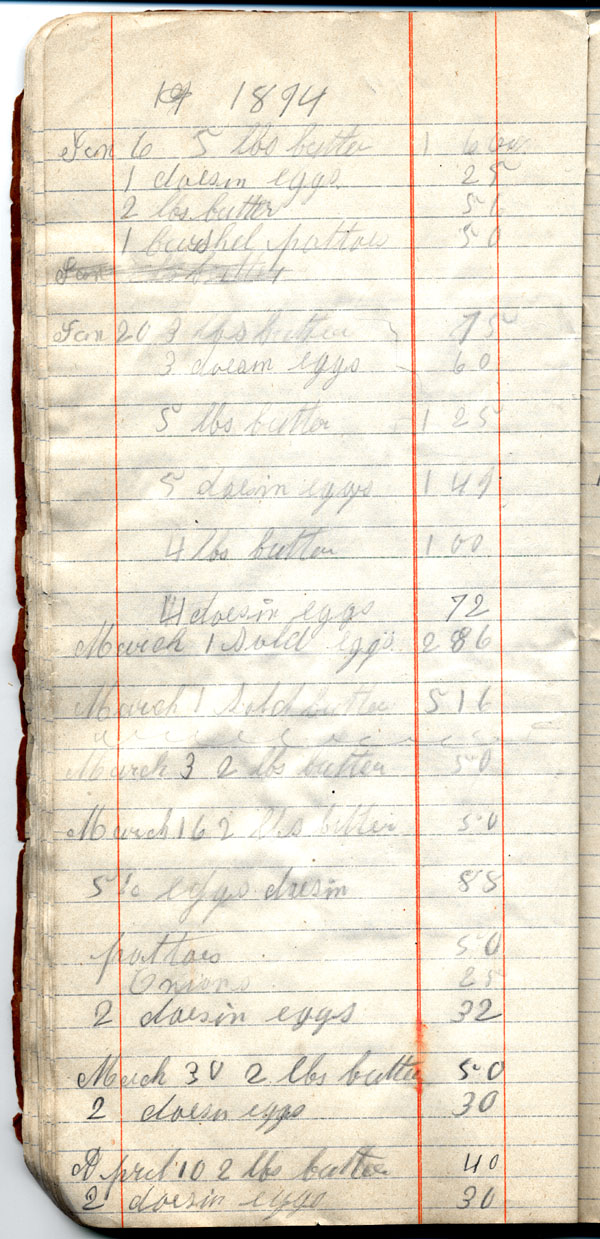 1894
Jan 6 5 lbs butter 1
1 doesin eggs 25
2 lbs butter 50
1 burshel pattoes 50
Jan
Jan 20 3 lbs butter 75
3 doesin eggs 60
5 lbs butter 1 25
5 doesin eggs 1 49
4 lbs butter 1 00
4 doesin eggs 72
March 1 Sold eggs 2 86
March 1 Sold butter 5 16
March 3 2 lbs butter 50
March 16 2 lbs butter 50
eggs doesin 88
pattoes 50
Onions 25
2 doesin eggs 32
March 30 2 lbs butter 50
2 doesn eggs 30
April 10 2 lbs butter 40
2 doesin eggs 30